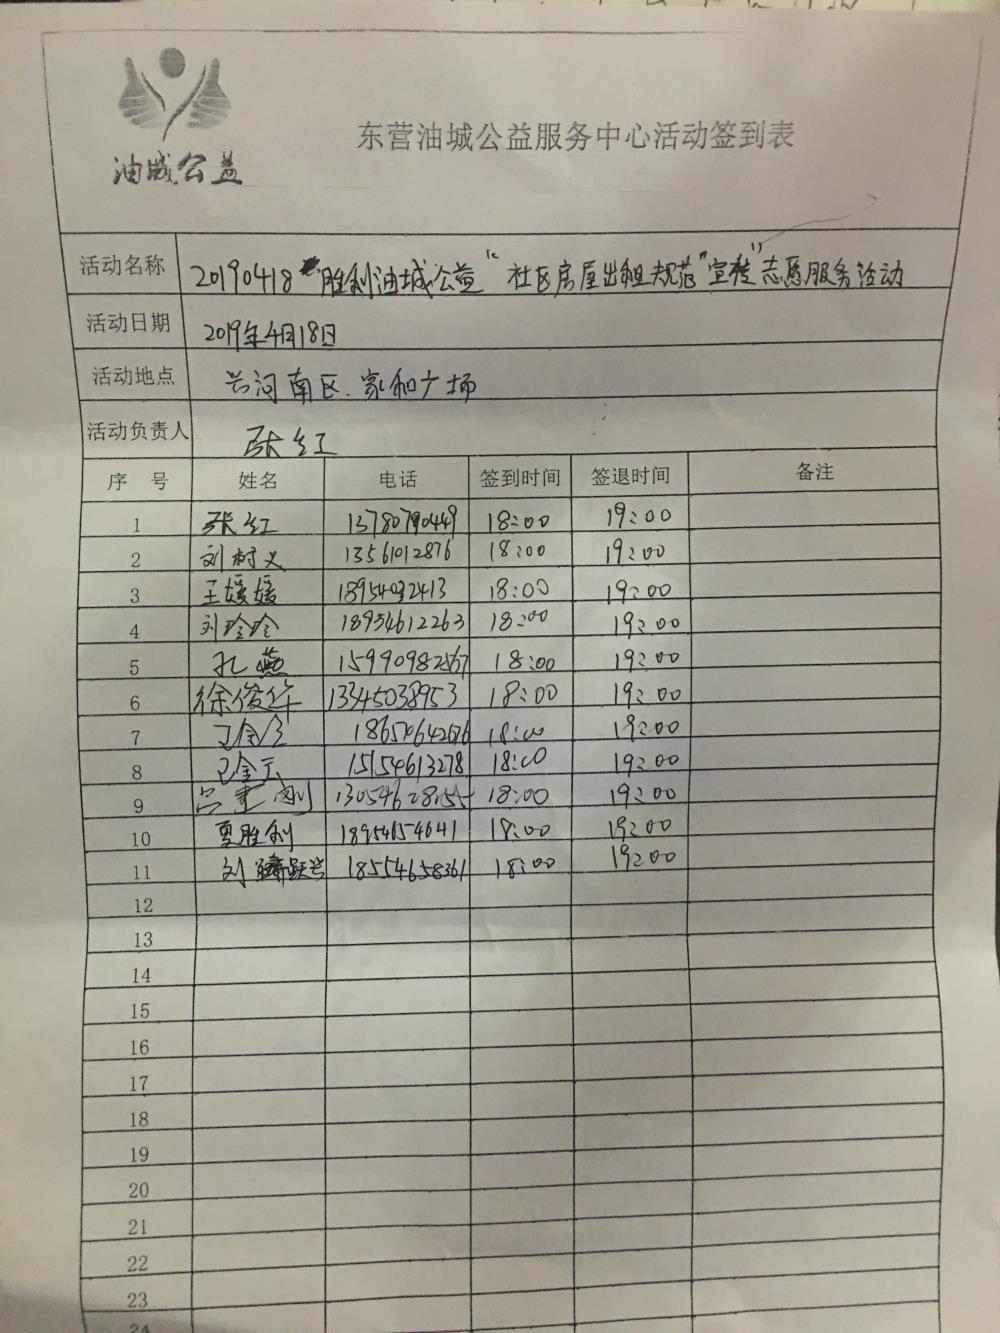 油城公益
东营油城公益服务中心活动签到表
活动名称 20190418 胜利油城公益“社区房屋出租规范”宣传”志愿服务活动
活动日期 2019年4月18日
活动地点 兴河南区.家和广场
活动负责人 张红
序号 姓名 电话 签到时间 签退时间 备注
1 张红 13780790449 18:00 19:00
2 刘树义 13561012876 18:00 19:00
3 王媛媛 18954032413 18:00 19:00
4 刘玲玲 18954612263 18:00 19:00
5 孔燕 18:00 19:00
6 徐俊华 13345038953 18:00 19:00
7 18:00 19:00
8 15154613278 18:00 19:00
9 18:00 19:00
10 贾胜利 18954654641 18:00 19:00
11 刘跃兴 18554658361 18:00 19:00
12
13
14
15
16
17
18
19
20
21
22
23
24